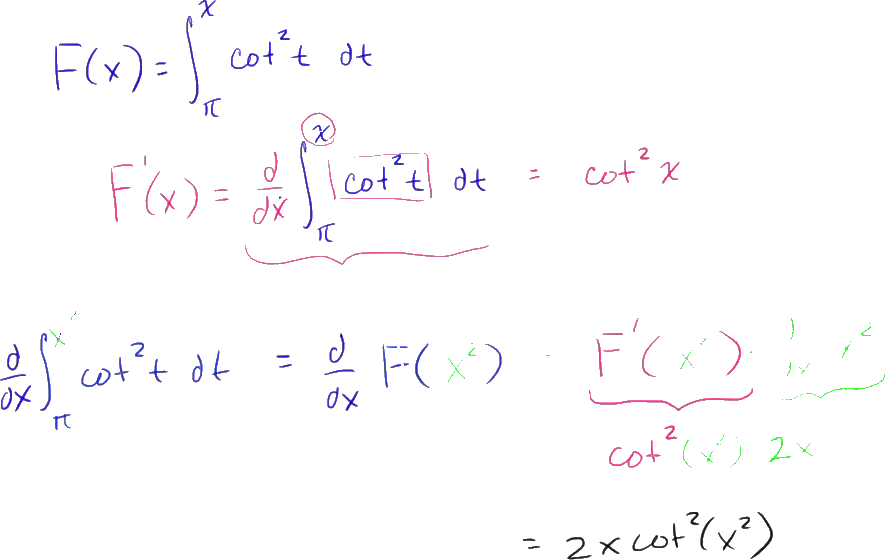 F(x) = ∫_π^x cot² t dt
F'(x) = d/dx ∫_π^x cot² t dt = cot² x
d/dx ∫_π^x² cot² t dt = d/dx F(x²) F'(x²) · x²
cot² (x²) 2x
= 2x cot² (x²)